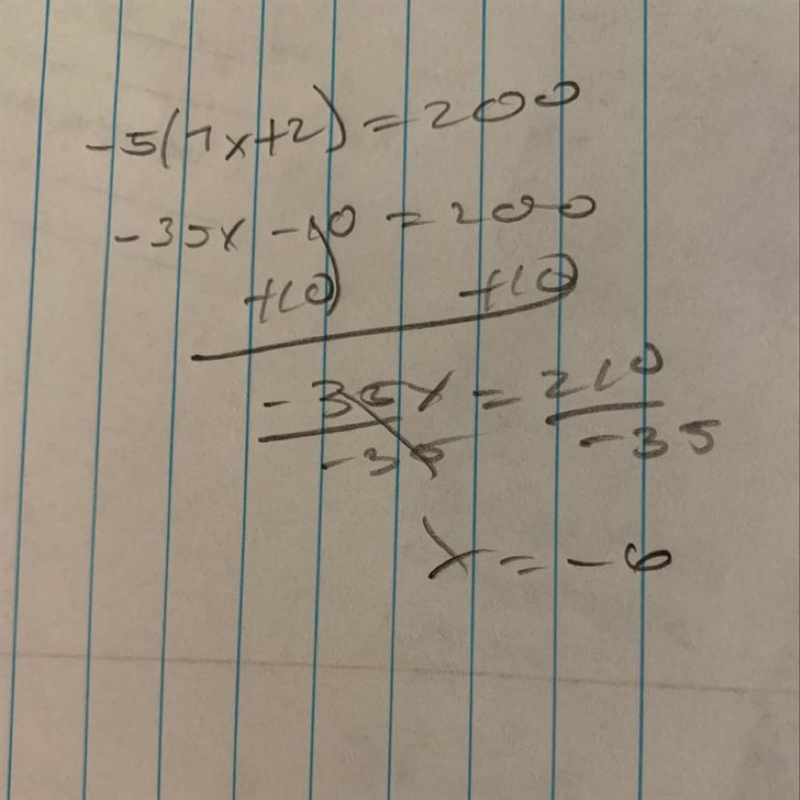 -5(7x+2)=200
-35x -10 = 200
+10 +10
-35x = 210
-35 -35
x = -6